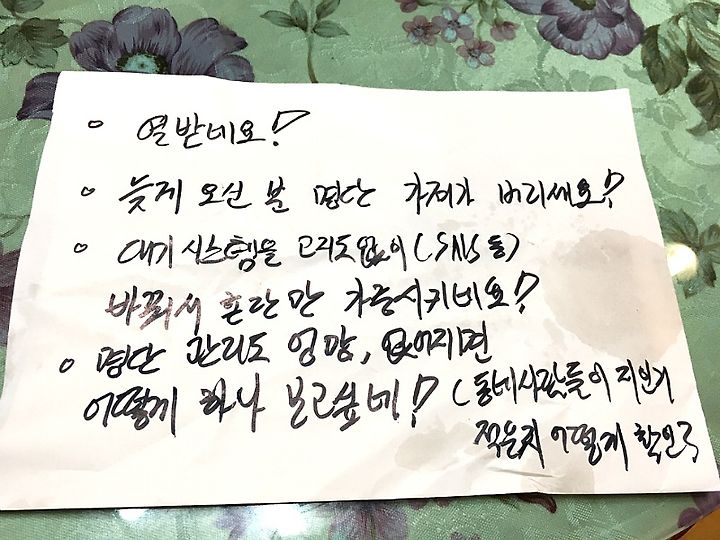 ○ 열받네요!
○ 늦게 오신 분 명단 가져가 버리세요!
○ 대기 시스템을 고리도없이 (SNS 등)
바꿔서 혼란만 가중시키네요!
○ 명단 관리도 엉망, 없어지면
어떻게 하나 보고싶네! (동네사람들이
적은지 어떻게 확인?